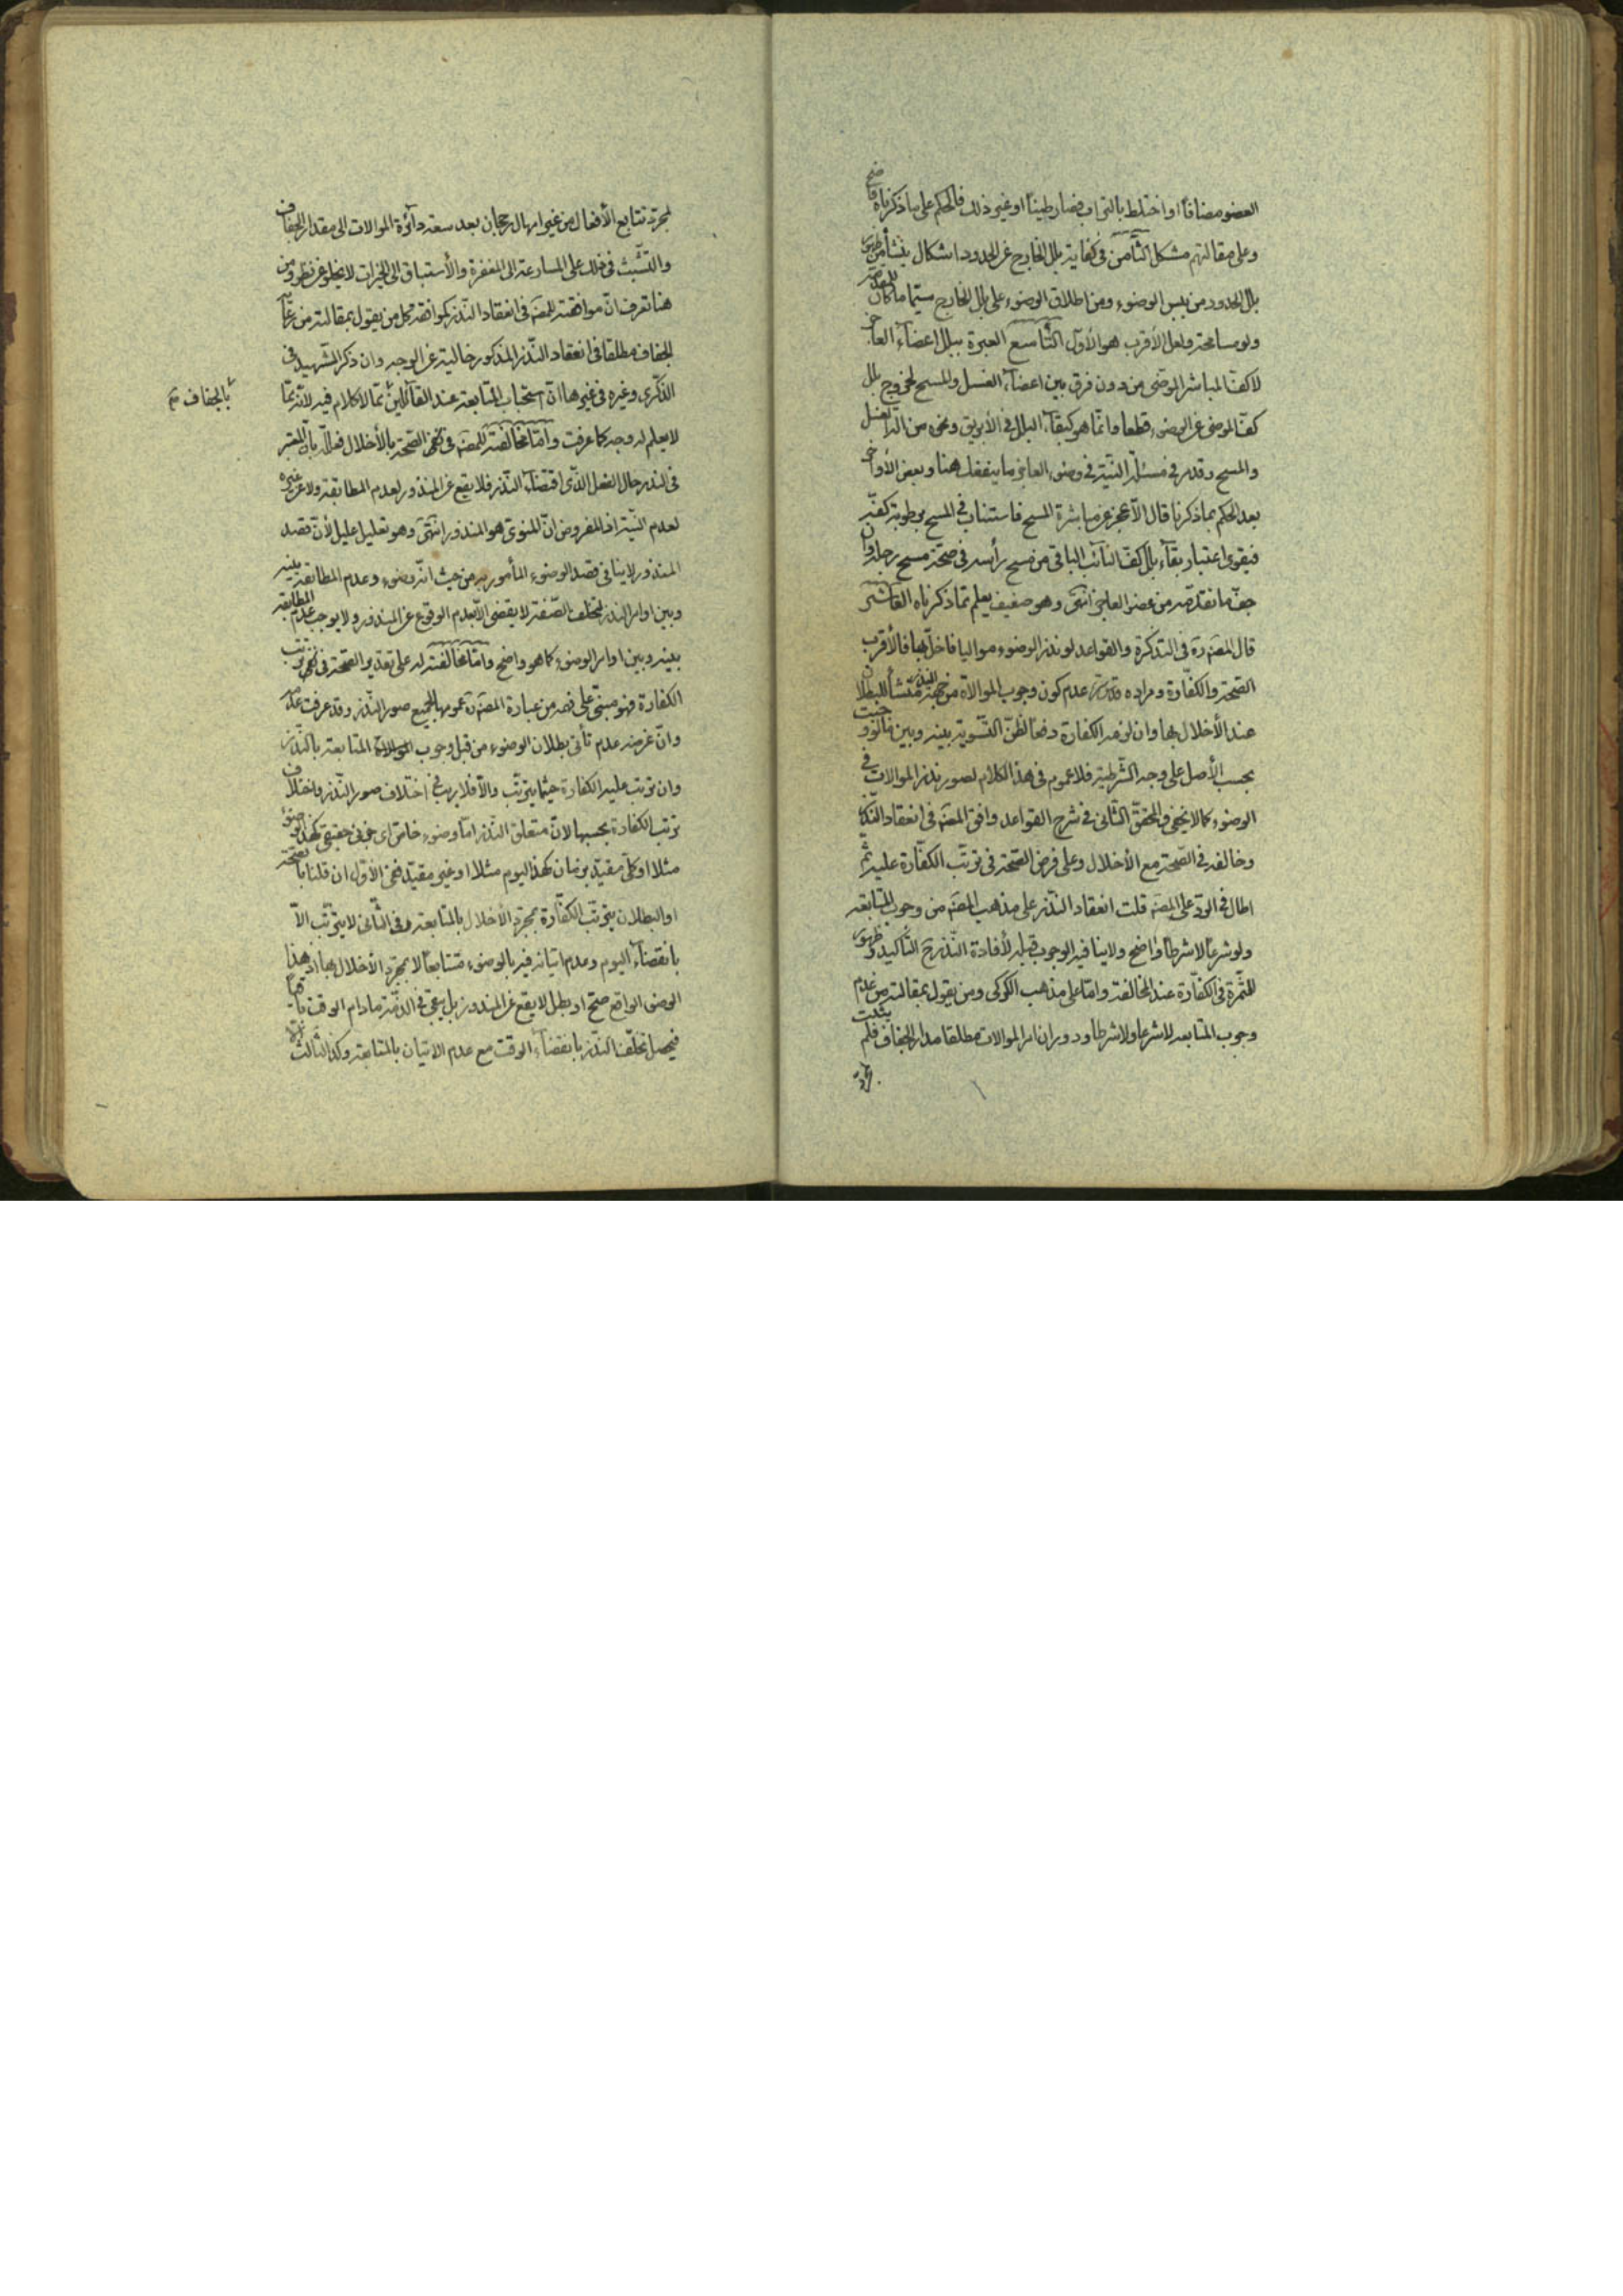 العضو مضافا او اختلط بالتراب فصار طينا او غير ذلك فالحكم على ما ذكرناه واضح
وعلى مقالتهم مشكل الثامن في كفاية بلل الخارج عن الحدود اشكال ينشأ من ظهور
بلل الحدود من يبس الوضوء ومن اطلاق الوضوء على بلل الخارج سيما ما كان للمقدمة
ولو مسامحة ولعل الأقرب هو الأول التاسع العبرة ببلل اعضاء العاجز
لا كف المباشر الموضئ من دون فرق بين اعضاء الغسل والمسح لخروج بلل
كف الموضئ عن الوضوء قطعا وانما هو كبقاء البلل في الأبريق ونحوه من الة الغسل
والمسح وقد مر في مسئلة النية في وضوء العاجز ما ينفعك هنا وبعض الأواخر
بعد الحكم بما ذكرنا قال الا عجز عن مباشرة المسح فاستناب في المسح برطوبة كفه
فيقوى اعتبار بقاء بلل كف النائب الباقي من مسح رأسه في صحة مسح رجله وان
جف ما تقدمه من عضو العاجز انتهى وهو ضعيف يعلم مما ذكرناه العاشر
قال المصنف ره في التذكرة والقواعد لو نذر الوضوء مواليا فاخل بها فالأقرب
الصحة والكفارة ومراده قدس سره عدم كون وجوب الموالاة من جهة النذر منشأ للبطلان
عند الأخلال بها وان لزمه الكفارة دفعا لظن التسوية بينه وبين ما لو وجبت
بحسب الأصل على وجه الشرطية فلا عموم في هذا الكلام لصور نذر الموالات في
الوضوء كما لا يخفى والمحقق الثاني في شرح القواعد وافق المصنف في انعقاد النذر
وخالفه في الصحة مع الأخلال وعلى فرض الصحة في ترتب الكفارة عليه ثم
اطال في الرد على المصنف قلت انعقاد النذر على مذهب المصنف من وجوب المتابعة
ولو شرعا لا شرطا واضح ولا ينافيه الوجوب قبله لأفادة النذر ح التأكيد وظهور
الثمرة في الكفارة عند المخالفة واما على مذهب الكركى ومن يقول بمقالته من عدم
وجوب المتابعة لا شرعا ولا شرطا ودوران امر الموالات مطلقا مدار الجفاف فلم يثبت
لمجرد تتابع الأفعال من غير امهال رجحان بعد سعة دائرة الموالات الى مقدار الجفاف
والتشبث في ذلك على المسارعة الى المغفرة والأستباق الى الخيرات لا يخلو عن نظر ومن
هنا تعرف ان موافقته للمصنف في انعقاد النذر كموافقة كل من يقول بمقالته من مراعاة
الجفاف مطلقا في انعقاد النذر المذكور خالية عن الوجه وان ذكر الشهيد في
الذكرى وغيره في غيرها ان استحباب المتابعة عند القائلين مما لا كلام فيه لأنه مما
بالجفاف
لا يعلم له وجه كما عرفت واما مخالفته للمصنف في الصحة بالأخلال فعلله بان المعتبر
في النذر حال الفعل الذي اقتضاه النذر فلا يقع عن المنذور لعدم المطابقة ولا عن غيره
لعدم النية اذ المفروض ان المنوى هو المنذور انتهى وهو تعليل عليل لأن قصد
المنذور لا ينافي قصد الوضوء المأمور به من حيث انه وضوء وعدم المطابقة بينه
وبين اوامر النذر لتخلف الصفة لا يقضى الا بعدم الوقوع عن المنذور ولا يوجب عدم المطابقة
بينه وبين اوامر الوضوء كما هو واضح واما مخالفته له على تقدير الصحة في ترتب
الكفارة فهو مبنى على فهمه من عبارة المصنف ره عمومها لجميع صور النذر وقد عرفت عدمه
وان غرضه عدم تأتى بطلان الوضوء من قبل وجوب المتابعة بالنذر
وان ترتب عليه الكفارة حيثما يترتب والا فلا ريب في اختلاف صور النذر واختلاف
ترتب الكفارة بحسبها لان متعلق النذر اما وضوء خاص اى جزئى حقيقى كهذا الوضوء
مثلا او كلى مقيد بزمان كهذا اليوم مثلا او غير مقيد ففى الأول ان قلنا بالصحة
او البطلان يترتب الكفارة بمجرد الأخلال بالمتابعة وفى الثانى لا يترتب الا
بانقضاء اليوم وعدم اتيانه فيه بالوضوء متتابعا لا بمجرد الأخلال بها اذ هذا
الوضوء الواقع صح او بطل لا يقع عن المنذور بل يبقى في الذمة ما دام الوقت باقيا
فيحصل تخلف النذر بانقضاء الوقت مع عدم الاتيان بالمتابعة وكذا الثالث